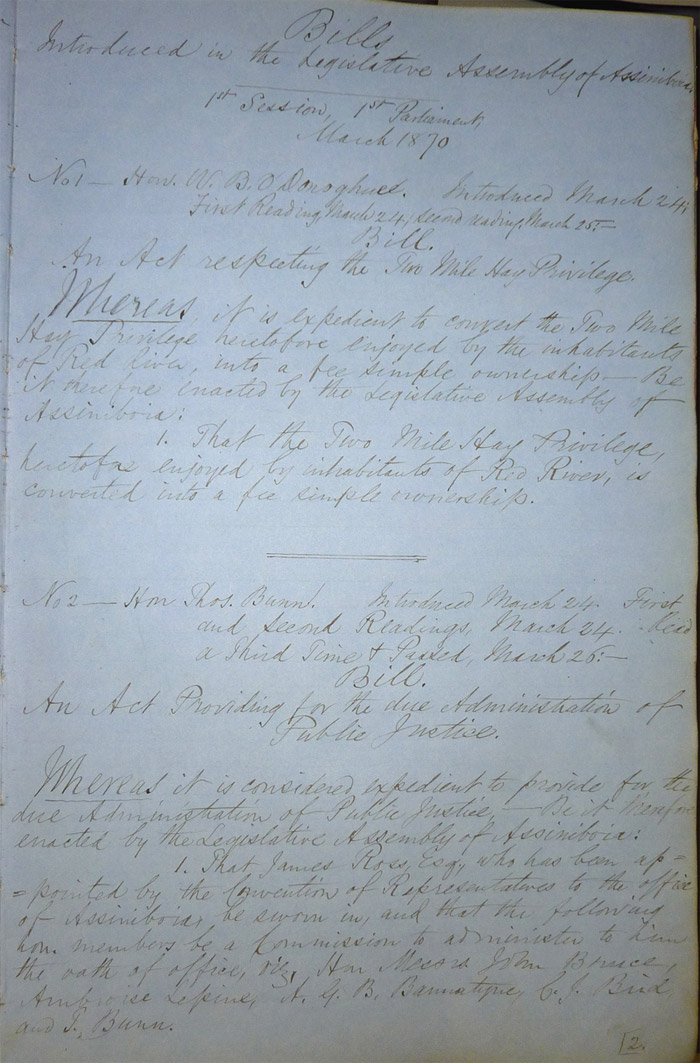 Bills
Introduced in the Legislative Assembly of Assiniboia,
1st Session, 1st Parliament,
March 1870
No 1 — Hon. W. B. O'Donoghue. Introduced March 24;
First Reading, March 24; second reading, March 25.—
Bill.
An Act respecting the Two Mile Hay Privilege.
Whereas, it is expedient to convert the Two Mile
Hay Privilege heretofore enjoyed by the inhabitants
of Red River, into a fee simple ownership — Be
it therefore enacted by the Legislative Assembly of
Assiniboia:
1. That the Two Mile Hay Privilege,
heretofore enjoyed by inhabitants of Red River, is
converted into a fee simple ownership.
No 2 — Hon Thos. Bunn. Introduced March 24. First
and Second Readings, March 24. Read
a Third Time & Passed, March 26.—
Bill.
An Act Providing for the due Administration of
Public Justice.
Whereas it is considered expedient to provide for the
due Administration of Public Justice — Be it therefore
enacted by the Legislative Assembly of Assiniboia:
1. That, James Ross, Esq., who has been ap=
=pointed by the Convention of Representatives to the office
of Assiniboia, be sworn in, and that the following
hon. members be a Commission to administer to him
the oath of office, viz, Hon Messrs John Bruce,
Ambroise Lepine, A. G. B. Bannatyne, C. J. Bird
and T. Bunn.
[2.